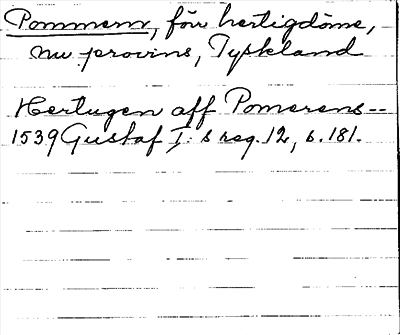 Pommern, förr hertigdöme,
nu provins, Tyskland
Hertugen aff Pomerens--
1539 Gustaf I:s reg. 12, s. 181.